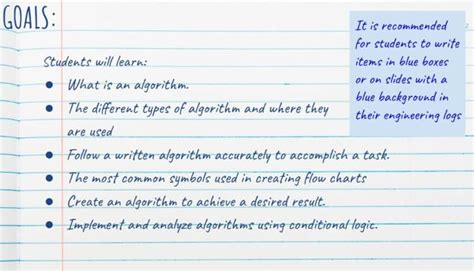 GOALS:
It is recommended
for students to write
items in blue boxes
or on slides with a
blue background in
their engineering logs
Students will learn:
● What is an algorithm.
● The different types of algorithm and where they
are used
● Follow a written algorithm accurately to accomplish a task.
● The most common symbols used in creating flow charts
● Create an algorithm to achieve a desired result.
● Implement and analyze algorithms using conditional logic.